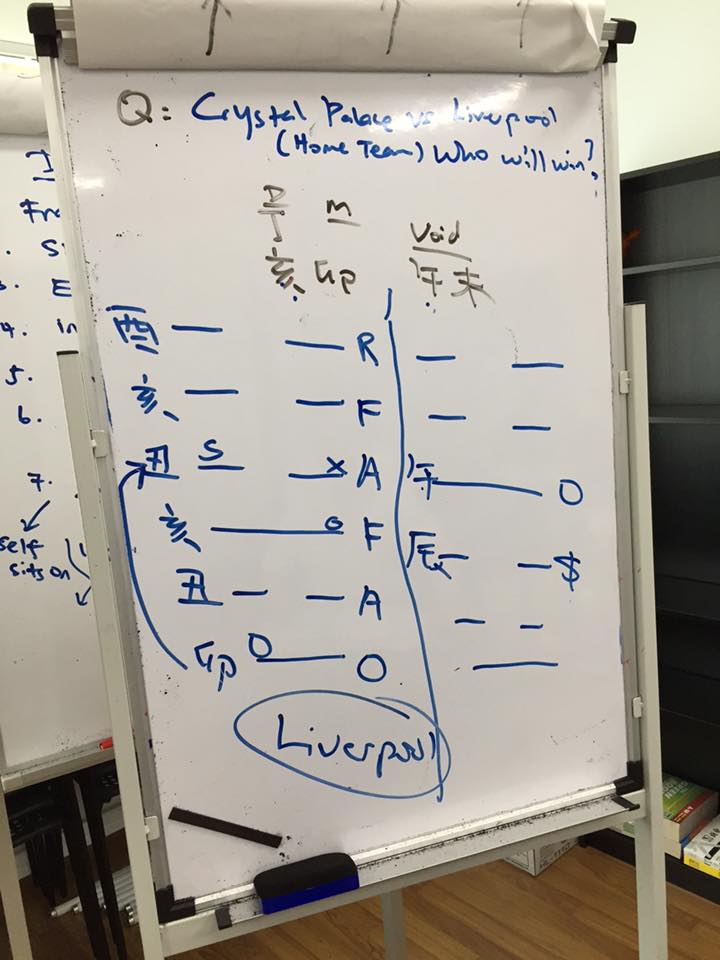 Q: Crystal Palace vs Liverpool
(Home Team) Who will win?
M
Void
亥 卯 午未
酉 R
亥 F
丑 S × A 午 O
亥 o F 辰 $
丑 A
卯 O O
Liverpool
4. In
5.
6.
7.
self
sits on